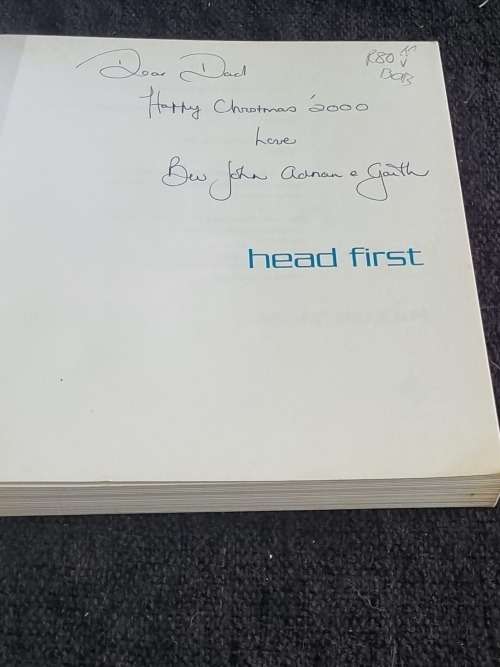 Dear Dad
R80
BOB
Happy Christmas '2000
Love
Bev John Adrian e Garth
head first